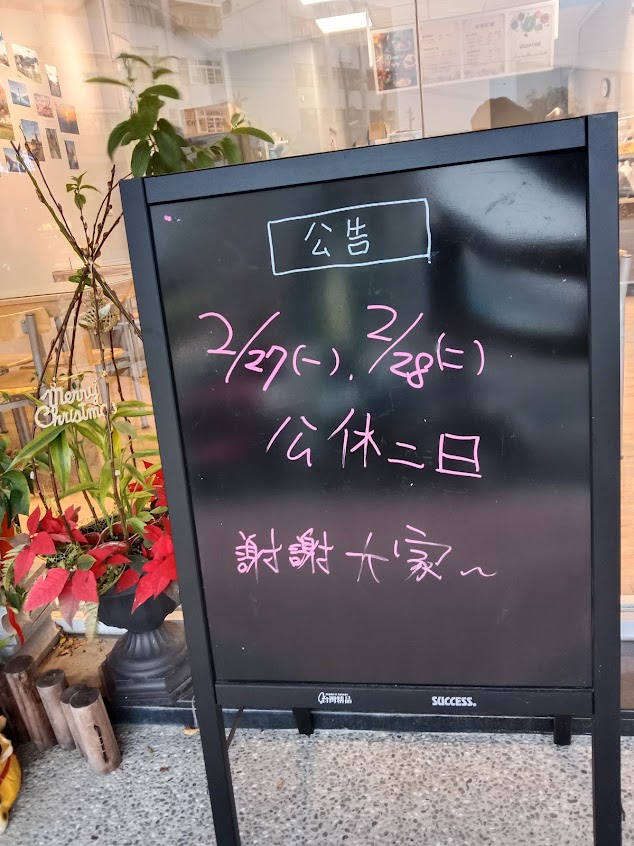 公告
2/27(一)、2/28(二)
公休二日
謝謝大家~
Merry
Christmas
台灣精品
SUCCESS.